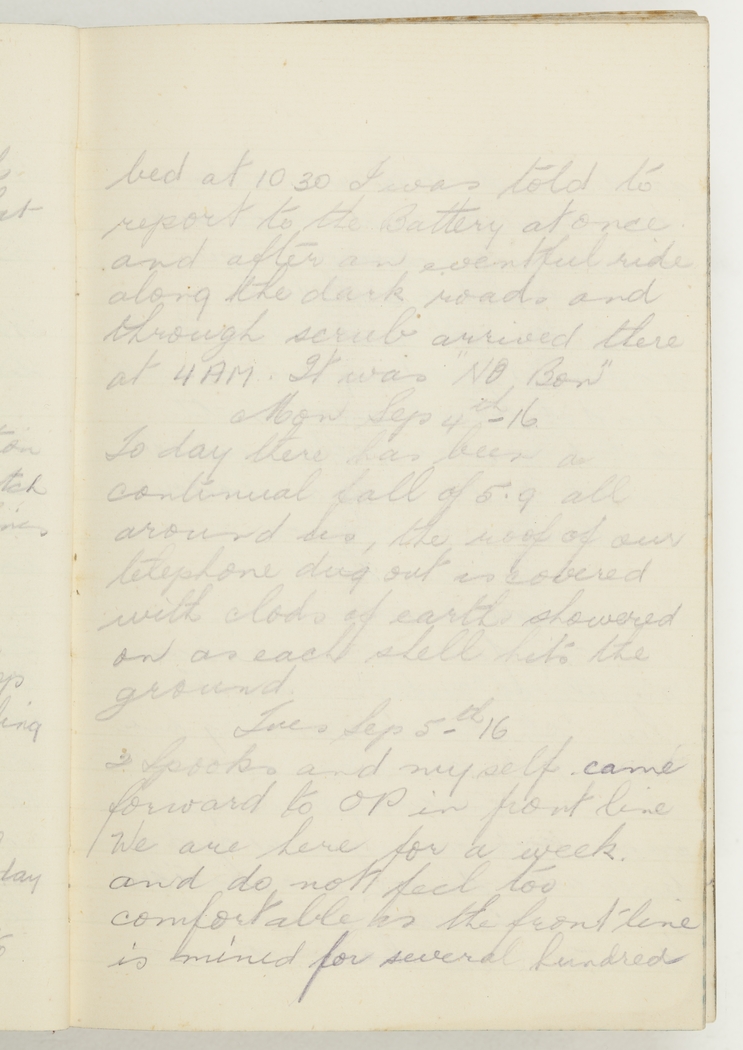 bed at 10 30 I was told to
report to the Battery at once
and after an eventful ride
along the dark roads and
through scrub arrived there
at 4 AM. It was "NO Bon"
Mon Sep 4th-16
To day there has been a
continual fall of 5.9 all
around us, the roof of our
telephone dug out is covered
with clods of earth showered
on as each shell hits the
ground.
Tues Sep 5-th 16
2 Spooks and myself came
forward to OP in front line
We are here for a week.
and do not feel too
comfortable as the front line
is mined for several hundred